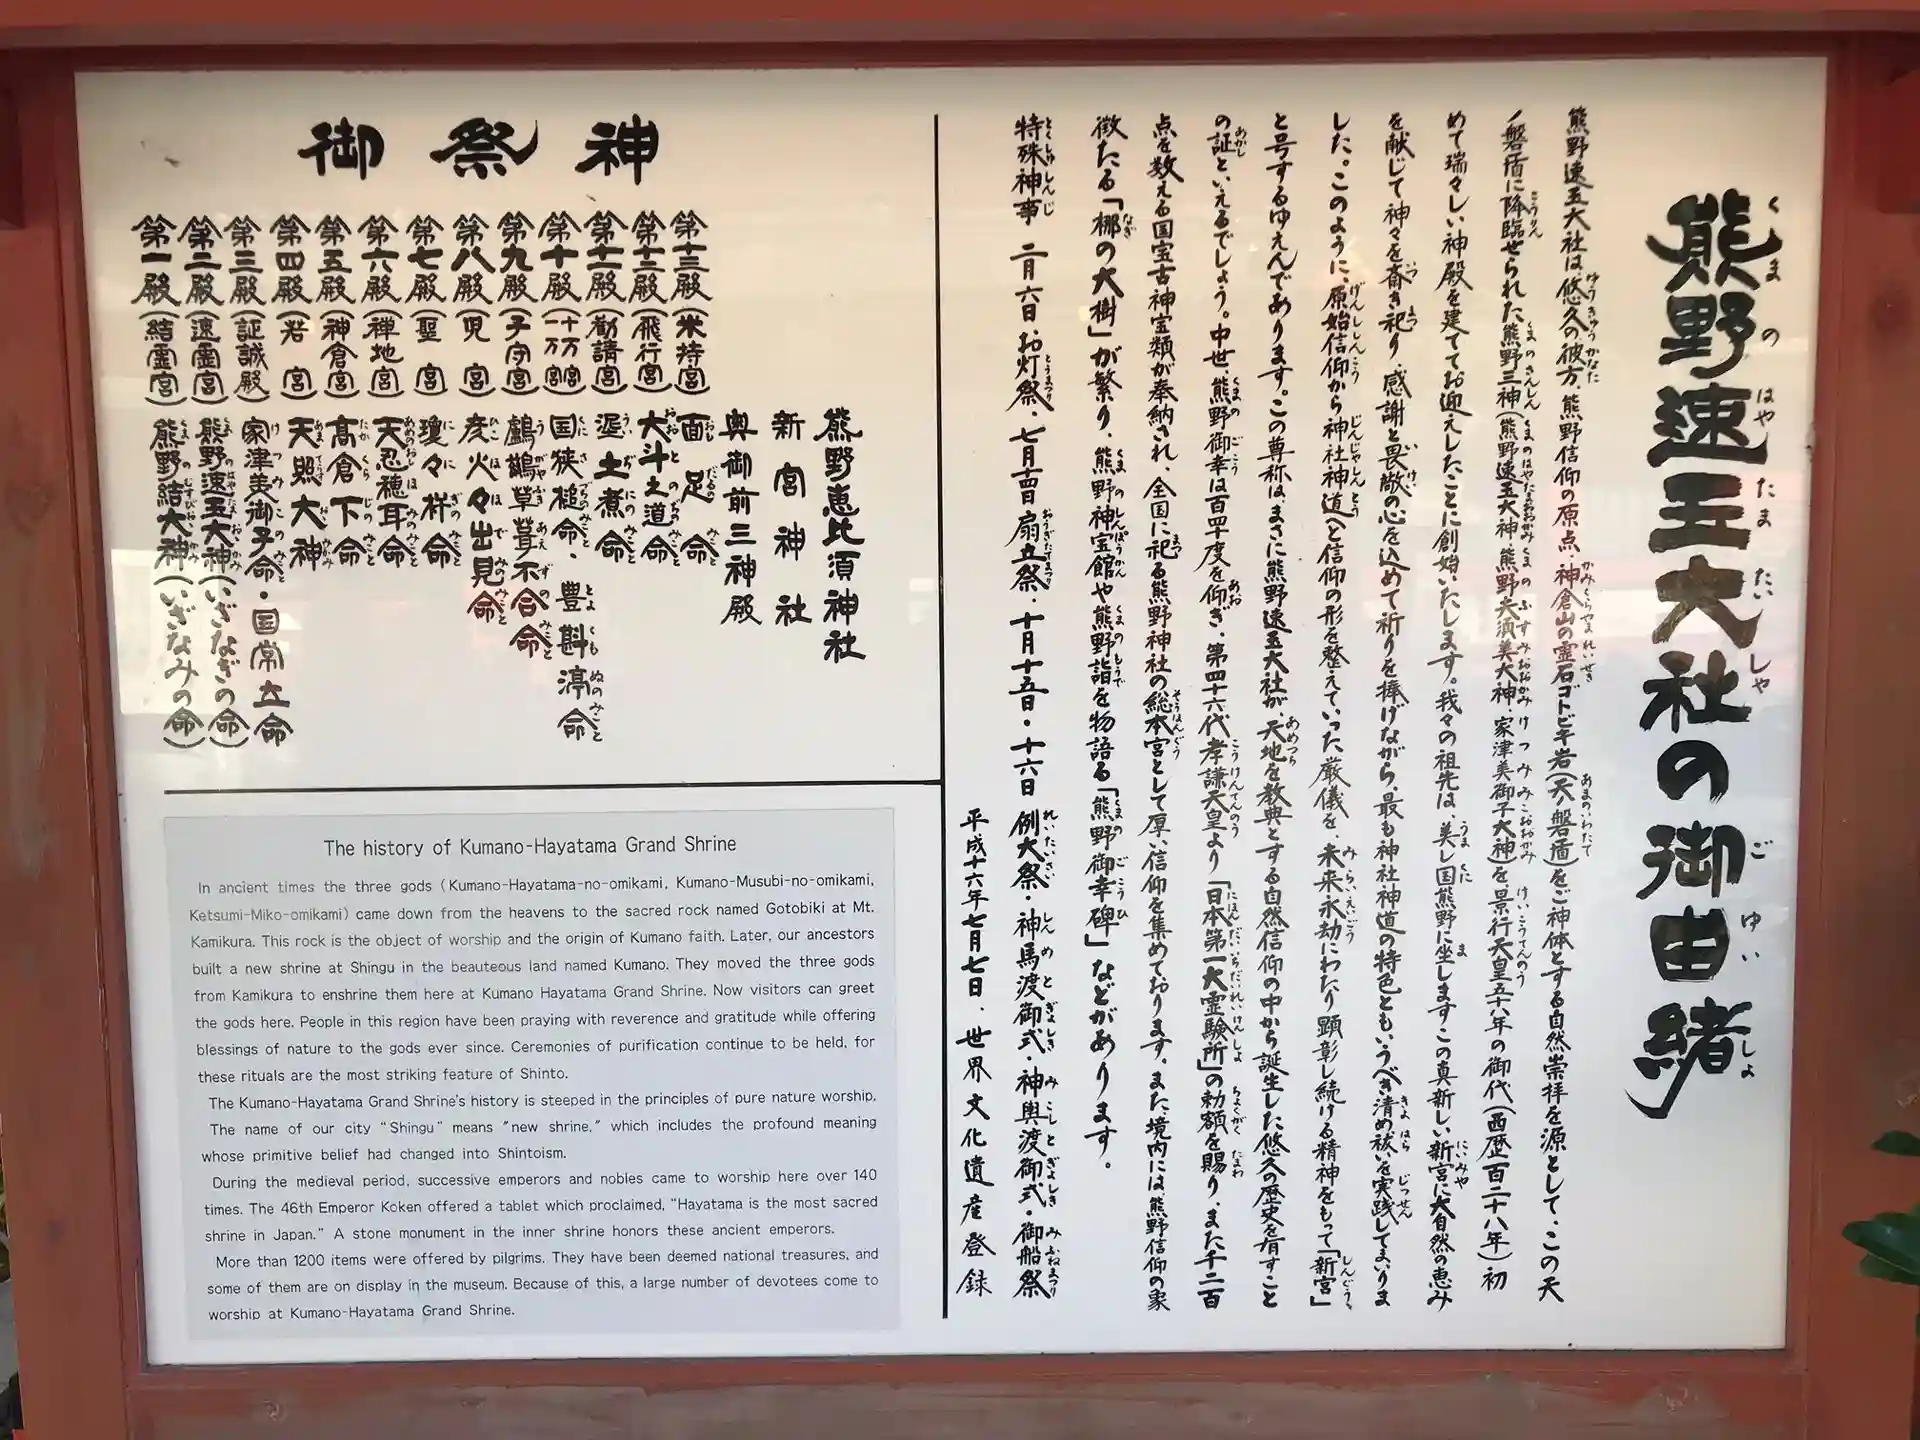 熊野速玉大社の御由緒
熊野速玉大社は悠久の彼方、熊野信仰の原点、神倉山の霊石ゴトビキ岩(天ノ磐盾)をご神体とする自然崇拝を源として、この天
ノ磐盾に降臨せられた熊野三神(熊野速玉大神・熊野夫須美大神・家津美御子大神)を、景行天皇五十八年の御代(西歴百二十八年)初
めて瑞々しい神殿を建ててお迎えしたことに創始いたします。我々の祖先は、美し国熊野に坐しますこの真新しい新宮に大自然の恵み
を献じて神々を斎き祀り、感謝と畏敬の心を込めて祈りを捧げながら、最も神社神道の特色ともいうべき清め祓いを実践してまいりま
した。このように、原始信仰から神社神道へと信仰の形を整えていった厳儀を、未来永劫にわたり顕彰し続ける精神をもって「新宮」
と号するゆえんであります。この尊称は、まさに熊野速玉大社が、天地を教典とする自然信仰の中から誕生した悠久の歴史を有すこと
の証といえるでしょう。中世、熊野御幸は百四十度を仰ぎ、第四十六代孝謙天皇より「日本第一大霊験所」の勅額を賜り、また千二百
点を数える国宝古神宝類が奉納され、全国に祀る熊野神社の総本宮として厚い信仰を集めております。また、境内には、熊野信仰の象
徴たる「梛の大樹」が繁り、熊野神宝館や熊野詣を物語る「熊野御幸碑」などがあります。
特殊神事 二月六日・お灯祭、七月十四日扇立祭・十月十五日・十六日 例大祭・神馬渡御式・神輿渡御式・御船祭
平成十六年七月七日、世界文化遺産登録
御祭神
熊野恵比須神社
新宮神社
奥御前三神殿
第十三殿(米持宮) 面足命
第十二殿(飛行宮) 大斗之道命
第十一殿(勧請宮) 泥土煮命
第十殿(一万宮 十万宮) 国狭槌命、豊斟渟命
第九殿(子守宮) 鸕鶿草葺不合命
第八殿(児宮) 彦火々出見命
第七殿(聖宮) 瓊々杵命
第六殿(禅地宮) 天忍穂耳命
第五殿(神倉宮) 高倉下命
第四殿(若宮) 天照大神
第三殿(証誠殿) 家津美御子命・国常立命
第二殿(速霊宮) 熊野速玉大神(いざなぎの命)
第一殿(結霊宮) 熊野結大神(いざなみの命)
The history of Kumano-Hayatama Grand Shrine
In ancient times the three gods (Kumano-Hayatama-no-omikami, Kumano-Musubi-no-omikami,
Ketsumi-Miko-omikami) came down from the heavens to the sacred rock named Gotobiki at Mt.
Kamikura. This rock is the object of worship and the origin of Kumano faith. Later, our ancestors
built a new shrine at Shingu in the beauteous land named Kumano. They moved the three gods
from Kamikura to enshrine them here at Kumano Hayatama Grand Shrine. Now visitors can greet
the gods here. People in this region have been praying with reverence and gratitude while offering
blessings of nature to the gods ever since. Ceremonies of purification continue to be held, for
these rituals are the most striking feature of Shinto.
The Kumano-Hayatama Grand Shrine's history is steeped in the principles of pure nature worship.
The name of our city "Shingu" means "new shrine," which includes the profound meaning
whose primitive belief had changed into Shintoism.
During the medieval period, successive emperors and nobles came to worship here over 140
times. The 46th Emperor Koken offered a tablet which proclaimed, "Hayatama is the most sacred
shrine in Japan." A stone monument in the inner shrine honors these ancient emperors.
More than 1200 items were offered by pilgrims. They have been deemed national treasures, and
some of them are on display in the museum. Because of this, a large number of devotees come to
worship at Kumano-Hayatama Grand Shrine.